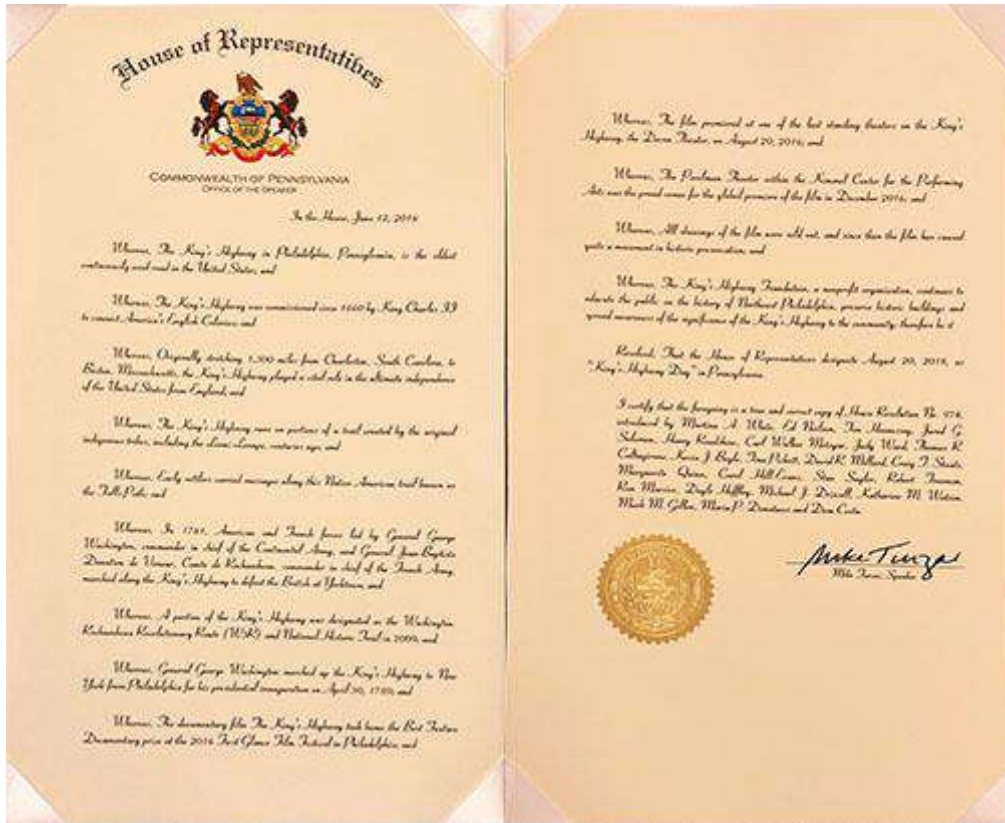 House of Representatives
COMMONWEALTH OF PENNSYLVANIA
OFFICE OF THE SPEAKER
In the House, June 12, 2018
Whereas, The King's Highway in Philadelphia, Pennsylvania, is the oldest
continuously used road in the United States; and
Whereas, The King's Highway was commissioned circa 1660 by King Charles II
to connect America's English Colonies; and
Whereas, Originally stretching 1,300 miles from Charleston, South Carolina, to
Boston, Massachusetts, the King's Highway played a vital role in the ultimate independence
of the United States from England; and
Whereas, The King's Highway runs on portions of a trail created by the original
indigenous tribes, including the Lenni-Lenape, centuries ago; and
Whereas, Early settlers carried messages along this Native American trail known as
the Falls Path; and
Whereas, In 1781, American and French forces led by General George
Washington, commander in chief of the Continental Army, and General Jean-Baptiste
Donatien de Vimeur, Comte de Rochambeau, commander in chief of the French Army,
marched along the King's Highway to defeat the British at Yorktown; and
Whereas, A portion of the King's Highway was designated as the Washington
Rochambeau Revolutionary Route (W3R) and National Historic Trail in 2009; and
Whereas, General George Washington marched up the King's Highway to New
York from Philadelphia for his presidential inauguration on April 30, 1789; and
Whereas, The documentary film The King's Highway took home the Best Feature
Documentary prize at the 2016 First Glance Film Festival in Philadelphia; and
Whereas, The film premiered at one of the last standing theaters on the King's
Highway, the Devon Theater, on August 20, 2016; and
Whereas, The Perelman Theater within the Kimmel Center for the Performing
Arts was the proud venue for the global premiere of the film in December 2016; and
Whereas, All showings of the film were sold out, and since then the film has caused
quite a movement in historic preservation; and
Whereas, The King's Highway Foundation, a nonprofit organization, continues to
educate the public on the history of Northeast Philadelphia, preserve historic buildings and
spread awareness of the significance of the King's Highway to the community; therefore be it
Resolved, That the House of Representatives designate August 20, 2018, as
"King's Highway Day" in Pennsylvania.
I certify that the foregoing is a true and correct copy of House Resolution No. 978,
introduced by Martina A. White, Ed Neilson, Tim Hennessey, Jared G.
Solomon, Harry Readshaw, Carl Walker Metzgar, Judy Ward, Thomas R.
Caltagirone, Kevin J. Boyle, Tina Pickett, David R. Millard, Craig T. Staats,
Marguerite Quinn, Carol Hill-Evans, Stan Saylor, Robert Freeman,
Ron Marsico, Doyle Heffley, Michael J. Driscoll, Katharine M. Watson,
Mark M. Gillen, Maria P. Donatucci and Dom Costa.
Mike Turzai
Mike Turzai, Speaker